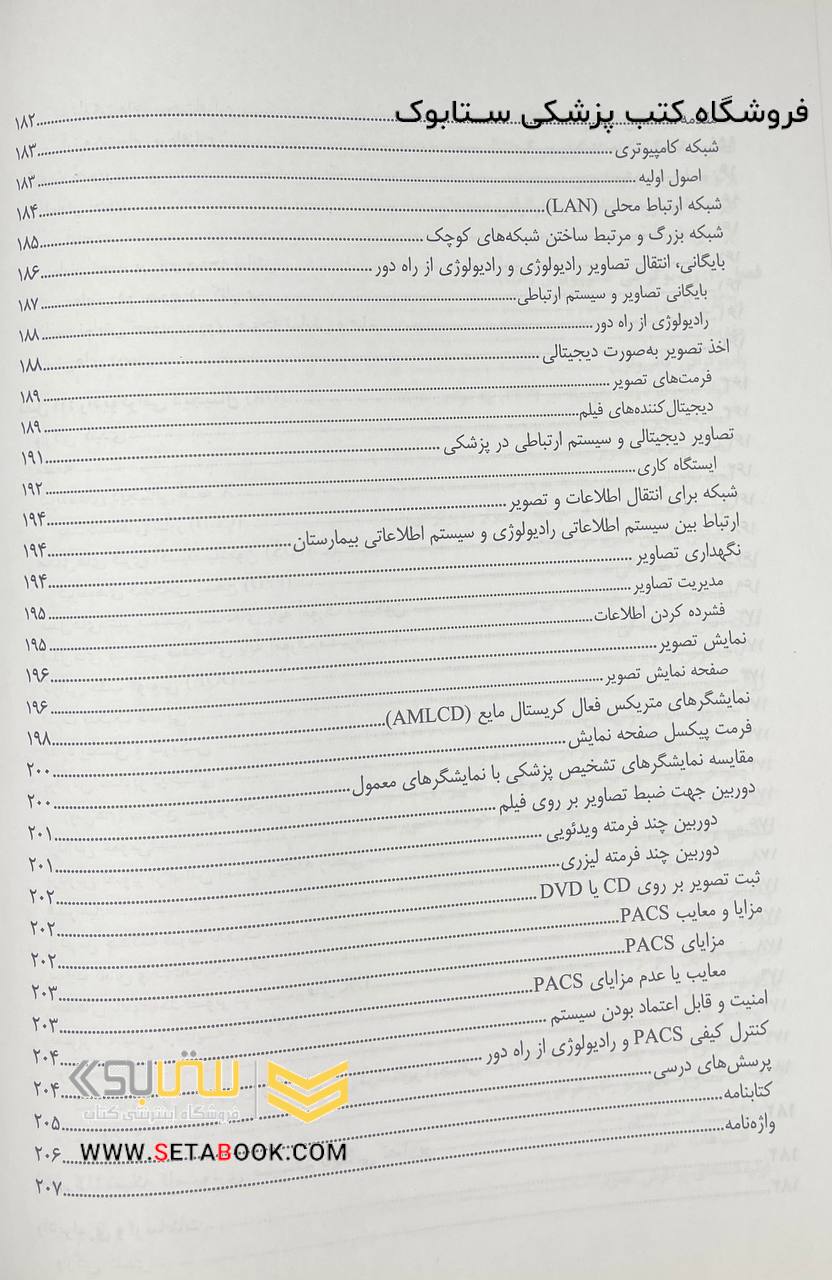 فروشگاه کتب پزشکی ستابوک
مقدمه ۱۸۲
شبکه کامپیوتری ۱۸۳
اصول اولیه ۱۸۳
شبکه ارتباط محلی (LAN) ۱۸۴
شبکه بزرگ و مرتبط ساختن شبکه‌های کوچک ۱۸۵
بایگانی، انتقال تصاویر رادیولوژی و رادیولوژی از راه دور ۱۸۶
بایگانی تصاویر و سیستم ارتباطی ۱۸۷
رادیولوژی از راه دور ۱۸۸
اخذ تصویر به‌صورت دیجیتالی ۱۸۸
فرمت‌های تصویر ۱۸۹
دیجیتال‌کننده‌های فیلم ۱۸۹
تصاویر دیجیتالی و سیستم ارتباطی در پزشکی ۱۹۱
ایستگاه کاری ۱۹۲
شبکه برای انتقال اطلاعات و تصویر ۱۹۴
ارتباط بین سیستم اطلاعاتی رادیولوژی و سیستم اطلاعاتی بیمارستان ۱۹۴
نگهداری تصاویر ۱۹۴
مدیریت تصاویر ۱۹۵
فشرده کردن اطلاعات ۱۹۵
نمایش تصویر ۱۹۶
صفحه نمایش تصویر ۱۹۶
نمایشگرهای متریکس فعال کریستال مایع (AMLCD) ۱۹۸
فرمت پیکسل صفحه نمایش ۲۰۰
مقایسه نمایشگرهای تشخیص پزشکی با نمایشگرهای معمول ۲۰۰
دوربین جهت ضبط تصاویر بر روی فیلم ۲۰۱
دوربین چند فرمته ویدئویی ۲۰۱
دوربین چند فرمته لیزری ۲۰۲
ثبت تصویر بر روی CD یا DVD ۲۰۲
مزایا و معایب PACS ۲۰۲
مزایای PACS ۲۰۳
معایب یا عدم مزایای PACS ۲۰۳
امنیت و قابل اعتماد بودن سیستم ۲۰۴
کنترل کیفی PACS و رادیولوژی از راه دور ۲۰۴
پرسش‌های درسی ۲۰۵
کتابنامه ۲۰۶
واژه‌نامه ۲۰۷
ستابوک
فروشگاه اینترنتی کتاب
WWW.SETABOOK.COM